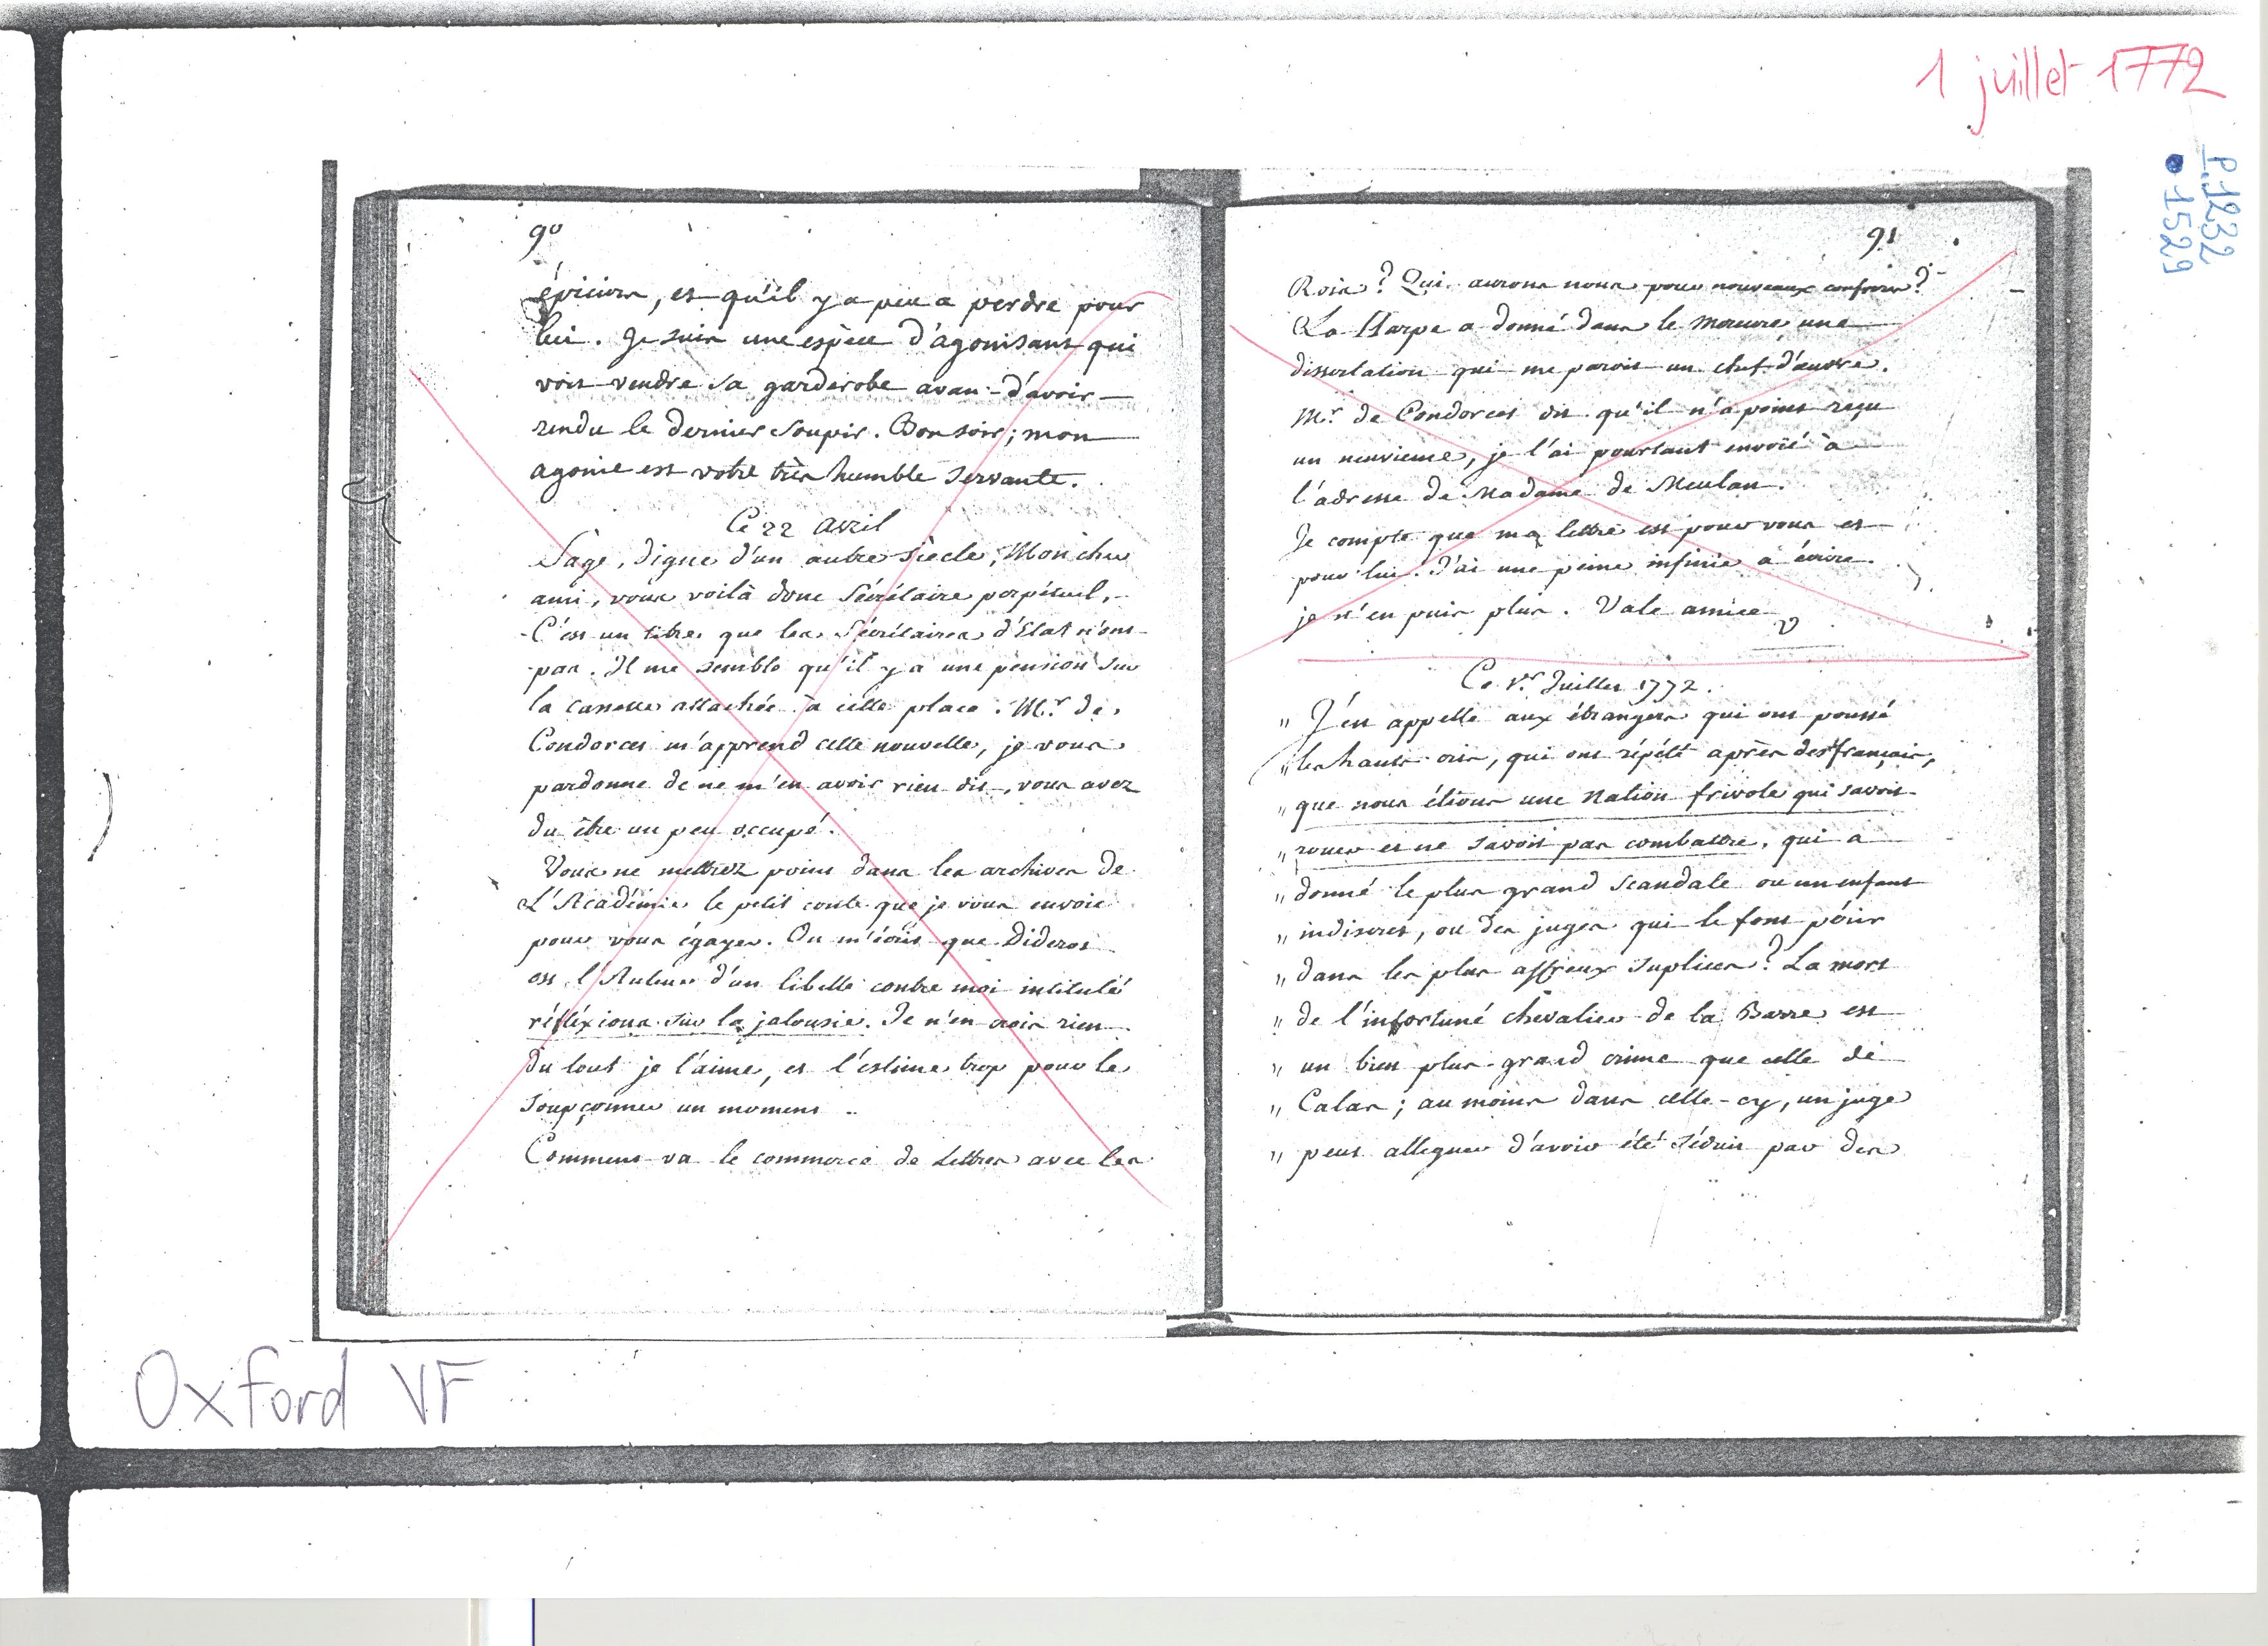 1 juillet 1772
P. 1232
1529
90
épiciers, et qu'il y a peu a perdre pour
lui. Je suis une espèce d'agonisant qui
voit vendre sa garderobe avant d'avoir
rendu le dernier soupir. Bonsoir; mon
agonie est votre très humble servante.
Ce 22 avril
Sage, digne d'un autre siecle, Mon cher
ami, vous voilà donc Sécrétaire perpétuel,
C'est un titre que les Sécrétaires d'Etat n'ont
pas. Il me semble qu'il y a une pension sur
la cassette attachée à cette place. Mr. de
Condorcet m'apprend cette nouvelle, je vous
pardonne de ne m'en avoir rien dit, vous avez
du être un peu occupé.
Vous ne mettrez point dans les archives de
L'Académie le petit conte que je vous envoie
pour vous égayer. On m'écrit que Diderot
est l'Auteur d'un libelle contre moi intitulé
réfléxions sur la jalousie. Je n'en crois rien
du tout je l'aime, et l'estime trop pour le
soupçonner un moment ..
Comment va le commerce de Lettres avec les
91
Rois? Qui aurons nous pour nouveaux confreres?
La Harpe a donné dans le mercure une
dissertation qui me paroit un chef d'œuvre.
Mr. de Condorcet dit qu'il n'a point reçu
un neuvieme, je l'ai pourtant envoié à
l'adresse de Madame de Meulan.
Je compte que ma lettre est pour vous et
pour lui. J'ai une peine infinie à écrire.
je n'en puis plus. Vale amice
V
Ce 1er. Juillet 1772.
" J'en appelle aux étrangers qui ont poussé
" les hauts cris, qui ont répété après des françois,
" que nous étions une Nation frivole qui savoit
" rouer et ne savoit pas combattre, qui a
" donné le plus grand scandale ou un enfant
" indiscret, ou des juges qui le font périr
" dans les plus affreux suplices? La mort
" de l'infortuné chevalier de la Barre est
" un bien plus grand crime que celle de
" Calas; au moins dans celle-cy, un juge
" peut alleguer d'avoir été séduit par des
Oxford VF